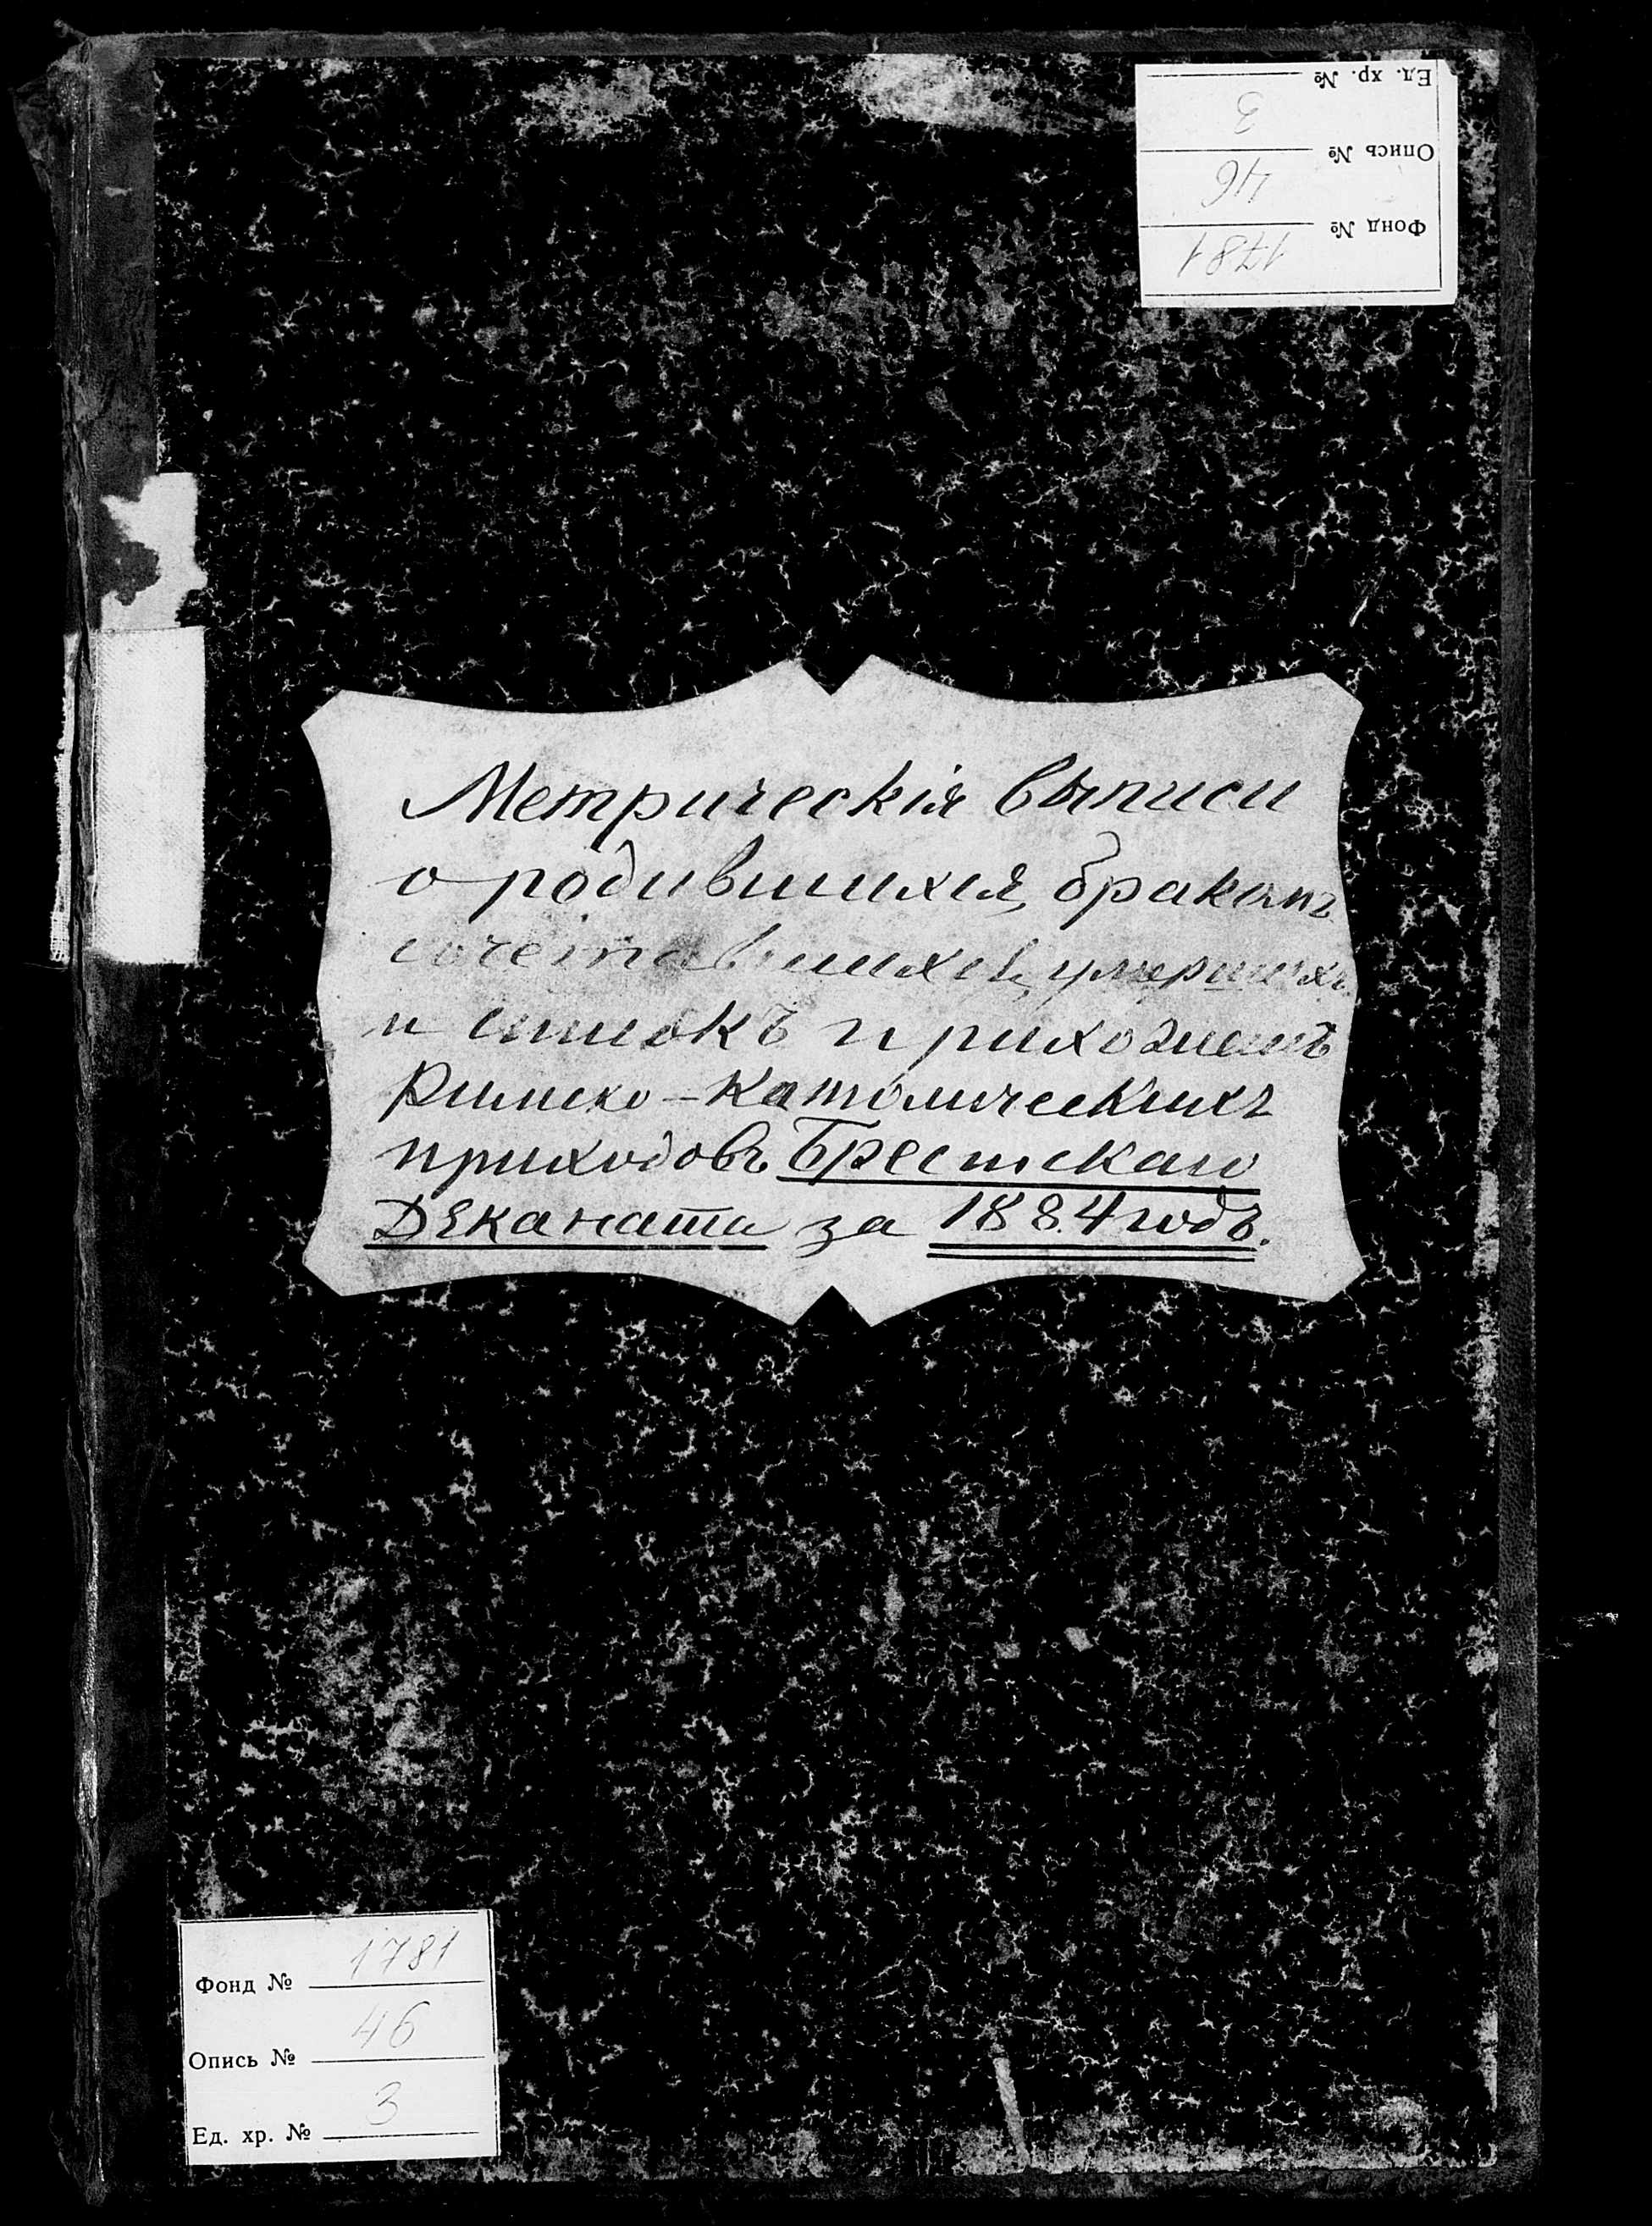 Ед. хр. № 3
Опись № 46
Фонд № 1781
Метрическія выписи
о родившихся, бракомъ
сочетавшихся, умершихъ
и списокъ прихожанъ
Римско-Католическихъ
приходовъ Брестскаго
Деканата за 1884 годъ.
Фонд № 1781
Опись № 46
Ед. хр. № 3